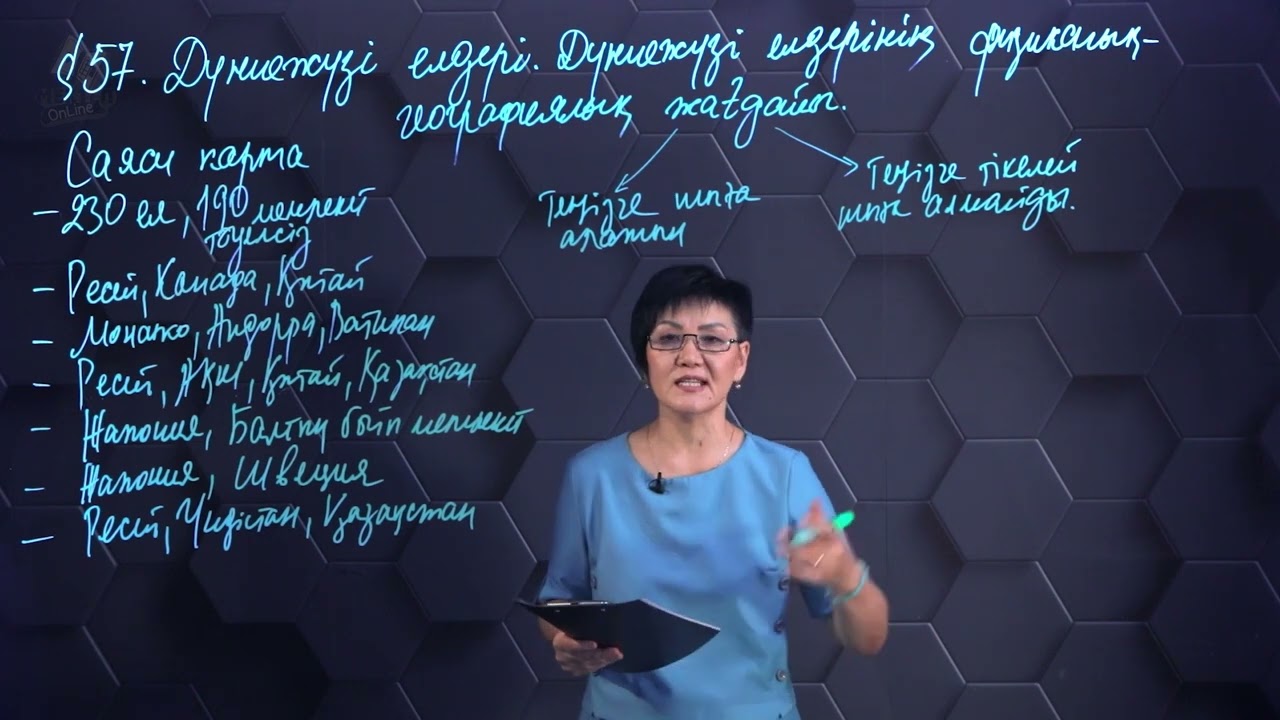 §57. Дүниежүзі елдері. Дүниежүзі елдерінің физикалық-
географиялық жағдайы.
Саяси карта
– 230 ел, 190 мемлекет
тәуелсіз
– Ресей, Канада, Қытай
– Монако, Андорра, Ватикан
– Ресей, АҚШ, Қытай, Қазақстан
– Жапония, Балтық бойы мемлекет
– Жапония, Швеция
– Ресей, Үндістан, Қазақстан
Теңізге шыға
алатын
Теңізге тікелей
шыға алмайды.
OnLine